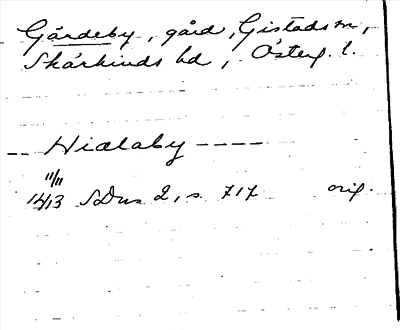 Gärdeby, gård, Gistads sn,
Skärkinds hd, Österg. l.
-- Hialaby ----
11/11
1413 SDns 2, s. 717 orig.